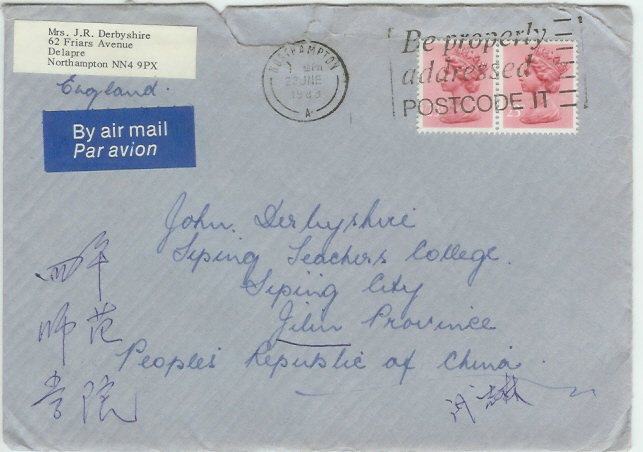 Mrs. J.R. Derbyshire
62 Friars Avenue
Delapre
Northampton NN4 9PX
England.
By air mail
Par avion
NORTHAMPTON
22 JNE
1983
A
Be properly
addressed
POSTCODE IT
John Derbyshire
Siping Teachers College.
Siping City
Jilin Province
Peoples Republic of China
四平
师范
学院
吉林